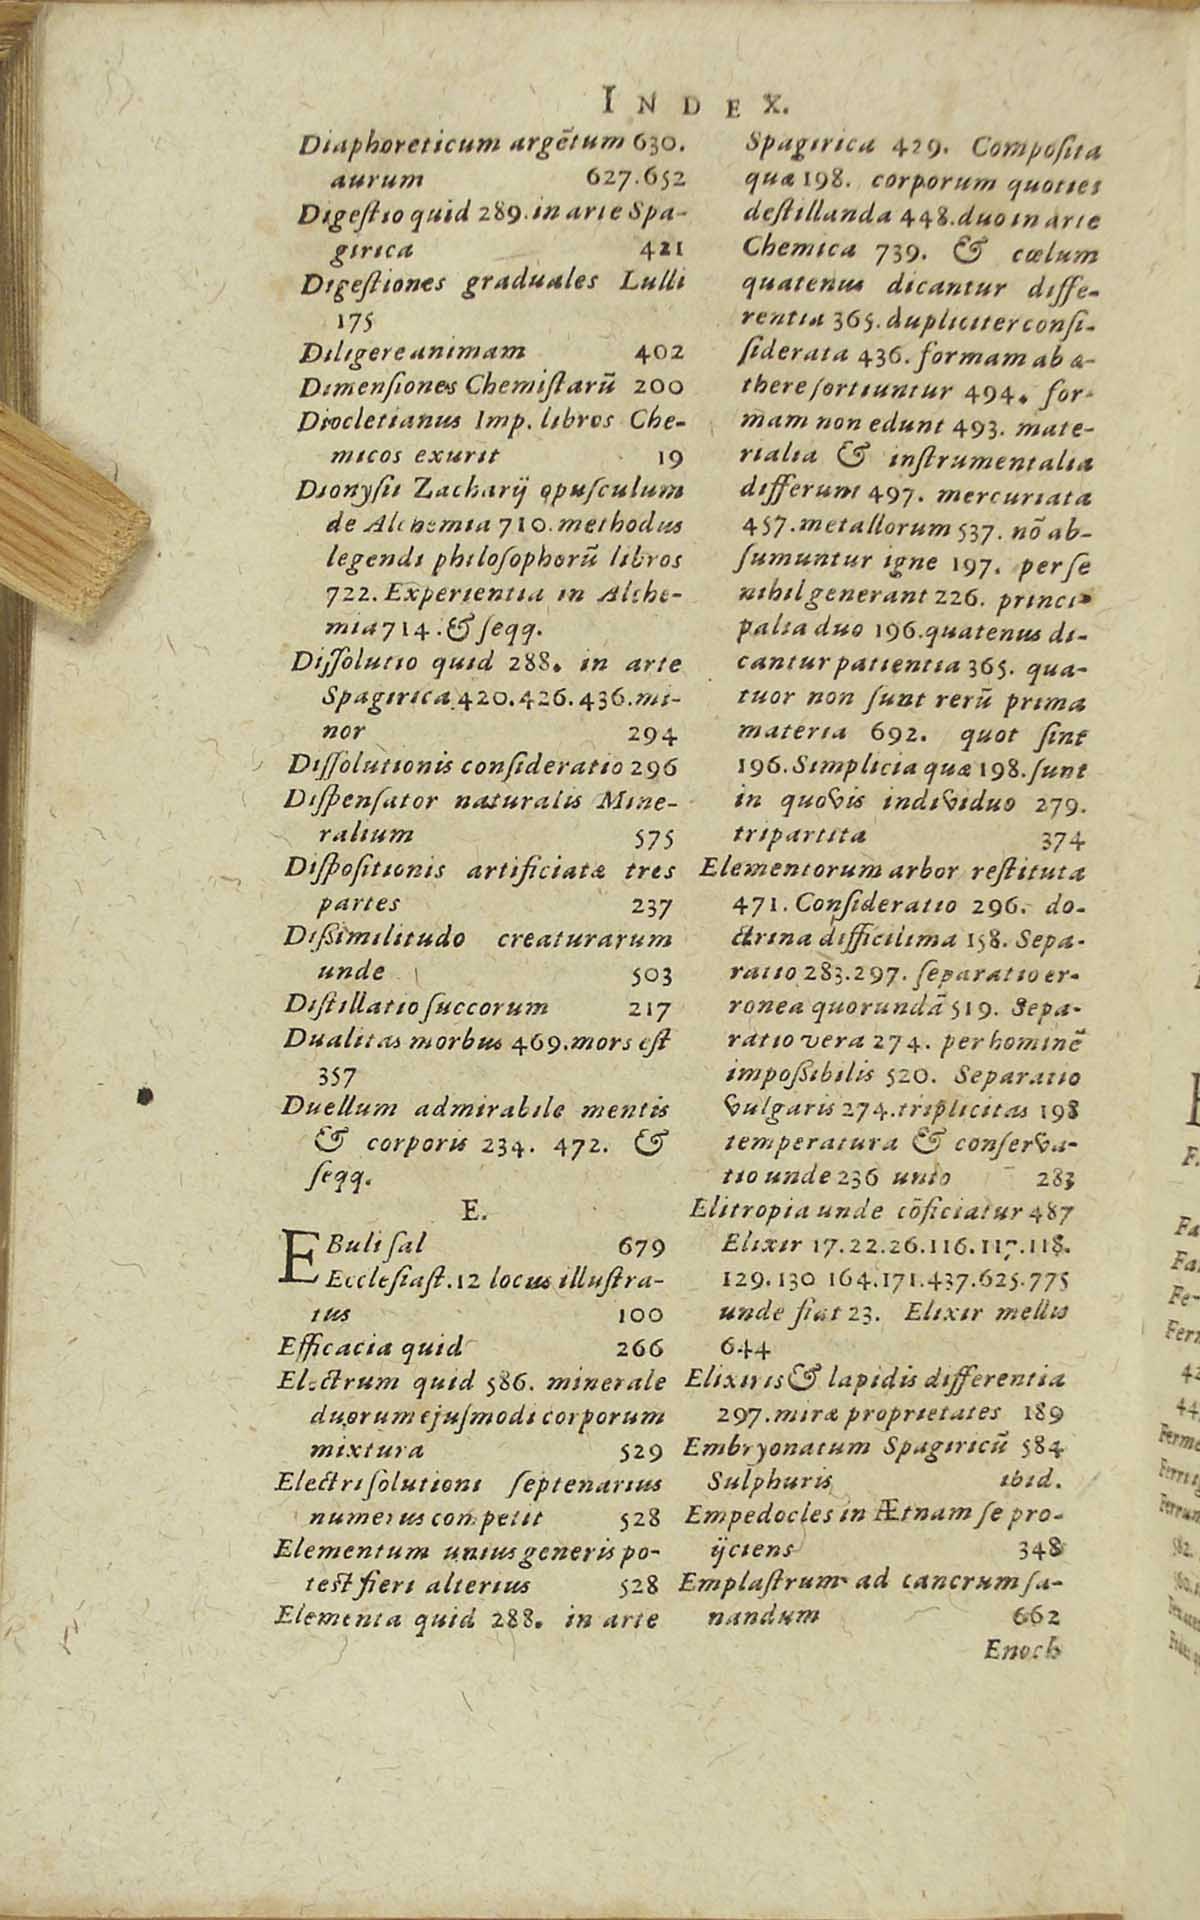 INDEX.
Diaphoreticum argẽtum 630.
aurum 627.652
Digeſtio quid 289. in arte Spa-
girica 421
Digeſtiones graduales Lulli
175
Diligere animam 402
Dimenſiones Chemiſtarũ 200
Diocletianus Imp. libros Che-
micos exurit 19
Dionyſii Zacharij opuſculum
de Alchemia 710. methodus
legendi philoſophorũ libros
722. Experientia in Alche-
mia 714. & ſeqq.
Diſſolutio quid 288. in arte
Spagirica 420.426.436. mi-
nor 294
Diſſolutionis conſideratio 296
Diſpenſator naturalis Mine-
ralium 575
Diſpoſitionis artificiatæ tres
partes 237
Diſsimilitudo creaturarum
unde 503
Diſtillatio ſuccorum 217
Dualitas morbus 469. mors eſt
357
Duellum admirabile mentis
& corporis 234. 472. &
ſeqq.
E.
EBuli ſal 679
Eccleſiaſt. 12 locus illuſtra-
tus 100
Efficacia quid 266
Electrum quid 586. minerale
duorum ejuſmodi corporum
mixtura 529
Electri ſolutioni ſeptenarius
numerus competit 528
Elementum unius generis po-
teſt fieri alterius 528
Elementa quid 288. in arte
Spagirica 429. Compoſita
quæ 198. corporum quoties
deſtillanda 448. duo in arte
Chemica 739. & cœlum
quatenus dicantur diffe-
rentia 365. dupliciter conſi-
ſiderata 436. formam ab æ-
there ſortiuntur 494. for-
mam non edunt 493. mate-
rialia & inſtrumentalia
differunt 497. mercuriata
457. metallorum 537. nõ ab-
ſumuntur igne 197. per ſe
nihil generant 226. princi-
palia duo 196. quatenus di-
cantur patientia 365. qua-
tuor non ſunt rerũ prima
materia 692. quot ſint
196. Simplicia quæ 198. ſunt
in quovis individuo 279.
tripartita 374
Elementorum arbor reſtituta
471. Conſideratio 296. do-
ctrina difficilima 158. Sepa-
ratio 283.297. ſeparatio er-
ronea quorundã 519. Sepa-
ratio vera 274. per hominẽ
impoſsibilis 520. Separatio
vulgaris 274. triplicitas 198
temperatura & conſerva-
tio unde 236 unio 283
Elitropia unde cõficiatur 487
Elixir 17.22.26.116.117.118.
129.130 164.171.437.625.775
unde fiat 23. Elixir mellis
644
Elixiris & lapidis differentia
297. miræ proprietates 189
Embryonatum Spagiricũ 584
Sulphuris ibid.
Empedocles in Ætnam ſe pro-
ijciens 348
Emplaſtrum ad cancrum ſa-
nandum 662
Enoch